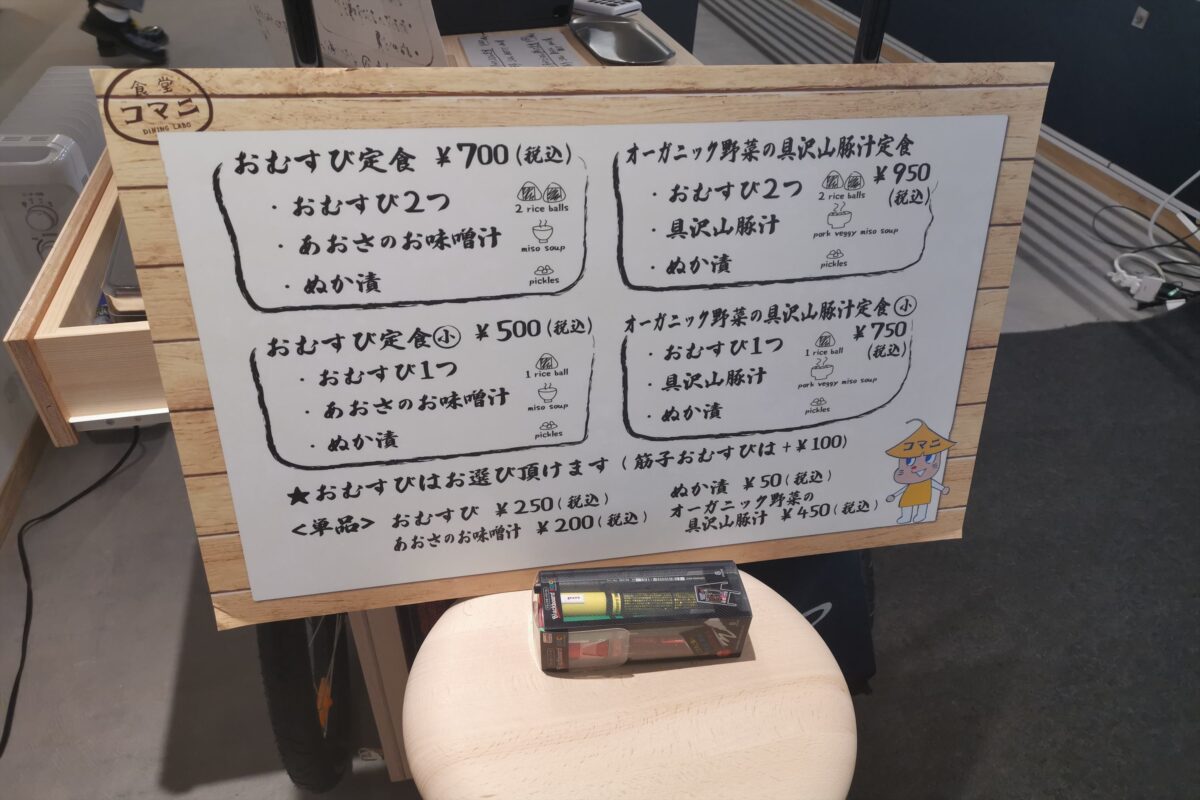 食堂
コマニ
DINING LABO
おむすび定食 ¥700(税込)
・おむすび2つ
2 rice balls
・あおさのお味噌汁
miso soup
・ぬか漬
pickles
オーガニック野菜の具沢山豚汁定食
¥950
(税込)
・おむすび2つ
2 rice balls
・具沢山豚汁
pork veggy miso soup
・ぬか漬
pickles
おむすび定食小 ¥500(税込)
・おむすび1つ
1 rice ball
・あおさのお味噌汁
miso soup
・ぬか漬
pickles
オーガニック野菜の具沢山豚汁定食小
¥750
(税込)
・おむすび1つ
1 rice ball
・具沢山豚汁
pork veggy miso soup
・ぬか漬
pickles
★おむすびはお選び頂けます(筋子おむすびは+¥100)
<単品> おむすび ¥250(税込)
あおさのお味噌汁 ¥200(税込)
ぬか漬 ¥50(税込)
オーガニック野菜の
具沢山豚汁 ¥450(税込)
コマニ
Blackboard